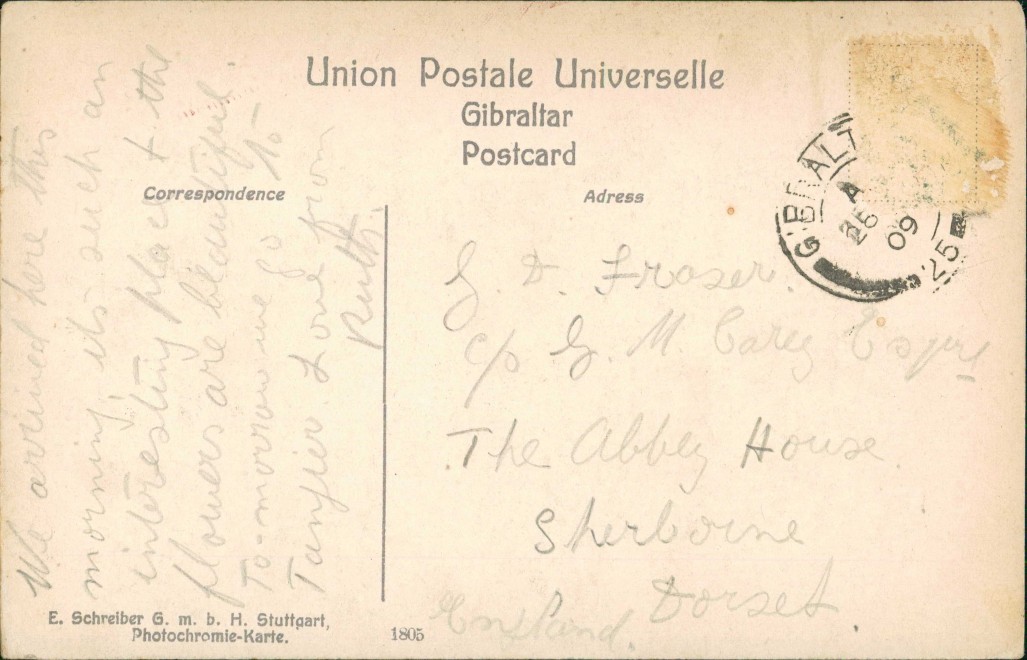 Union Postale Universelle
Gibraltar
Postcard
Correspondence
Adress
We arrived here this
morning, its such an
interesting place & the
flowers are beautiful.
To-morrow we go to
Tangier Love from
Ruth.
GIBRALT
A
26
09
25
G. D. Fraser.
c/o G. M Carey Esqre
The Abbey House.
Sherborne
Dorset
England.
E. Schreiber G. m. b. H. Stuttgart,
Photochromie-Karte.
1805